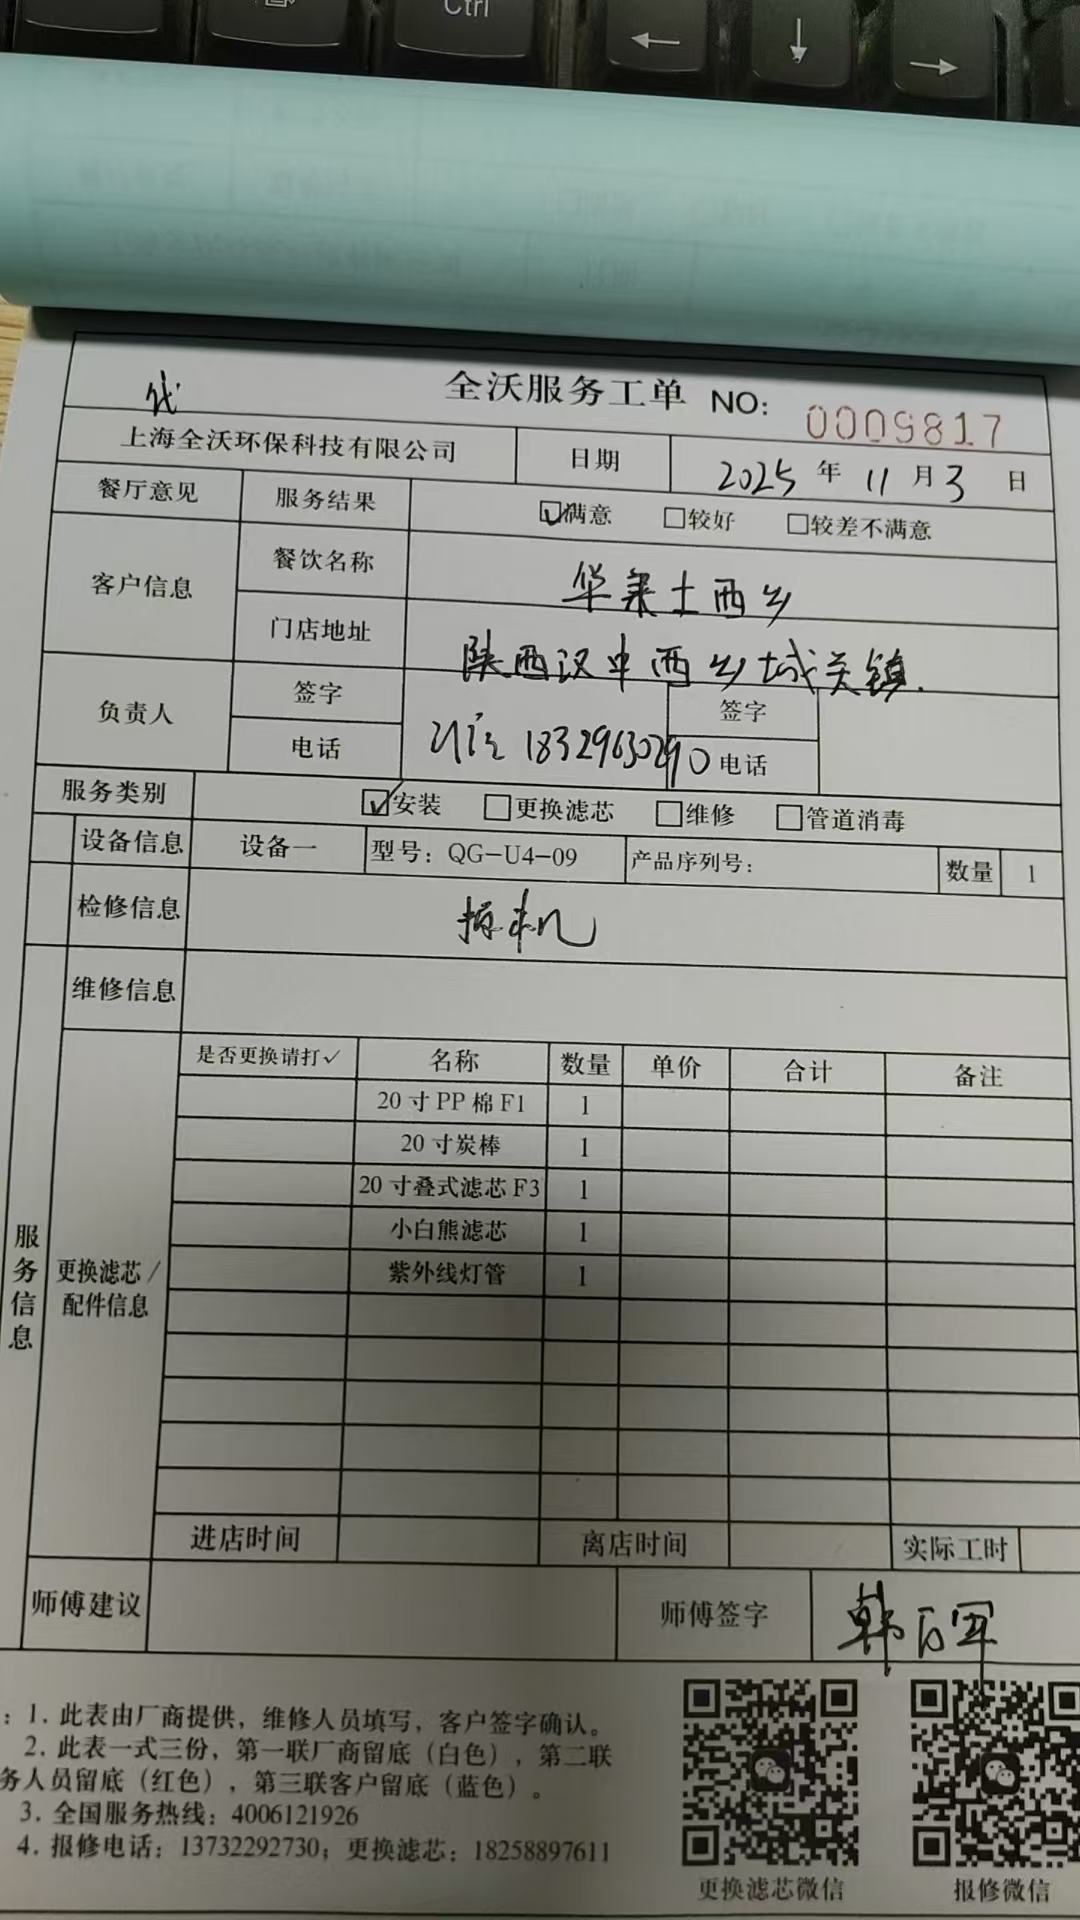 Ctrl
← ↓ →
代
全沃服务工单 NO: 0009817
上海全沃环保科技有限公司 日期 2025 年 11 月 3 日
餐厅意见 服务结果 ☑满意 □较好 □较差不满意
客户信息 餐饮名称 华莱士西乡
门店地址 陕西汉中西乡城关镇.
负责人 签字 签字
电话 18329630290 电话
服务类别 ☑安装 □更换滤芯 □维修 □管道消毒
设备信息 设备一 型号: QG-U4-09 产品序列号: 数量 1
检修信息 机
维修信息
服务信息
更换滤芯/配件信息
是否更换请打✓ 名称 数量 单价 合计 备注
20寸PP棉F1 1
20寸炭棒 1
20寸叠式滤芯F3 1
小白熊滤芯 1
紫外线灯管 1
进店时间 离店时间 实际工时
师傅建议 师傅签字 韩万军
: 1. 此表由厂商提供，维修人员填写，客户签字确认。
2. 此表一式三份，第一联厂商留底（白色），第二联
务人员留底（红色），第三联客户留底（蓝色）。
3. 全国服务热线: 4006121926
4. 报修电话: 13732292730; 更换滤芯: 18258897611
更换滤芯微信 报修微信